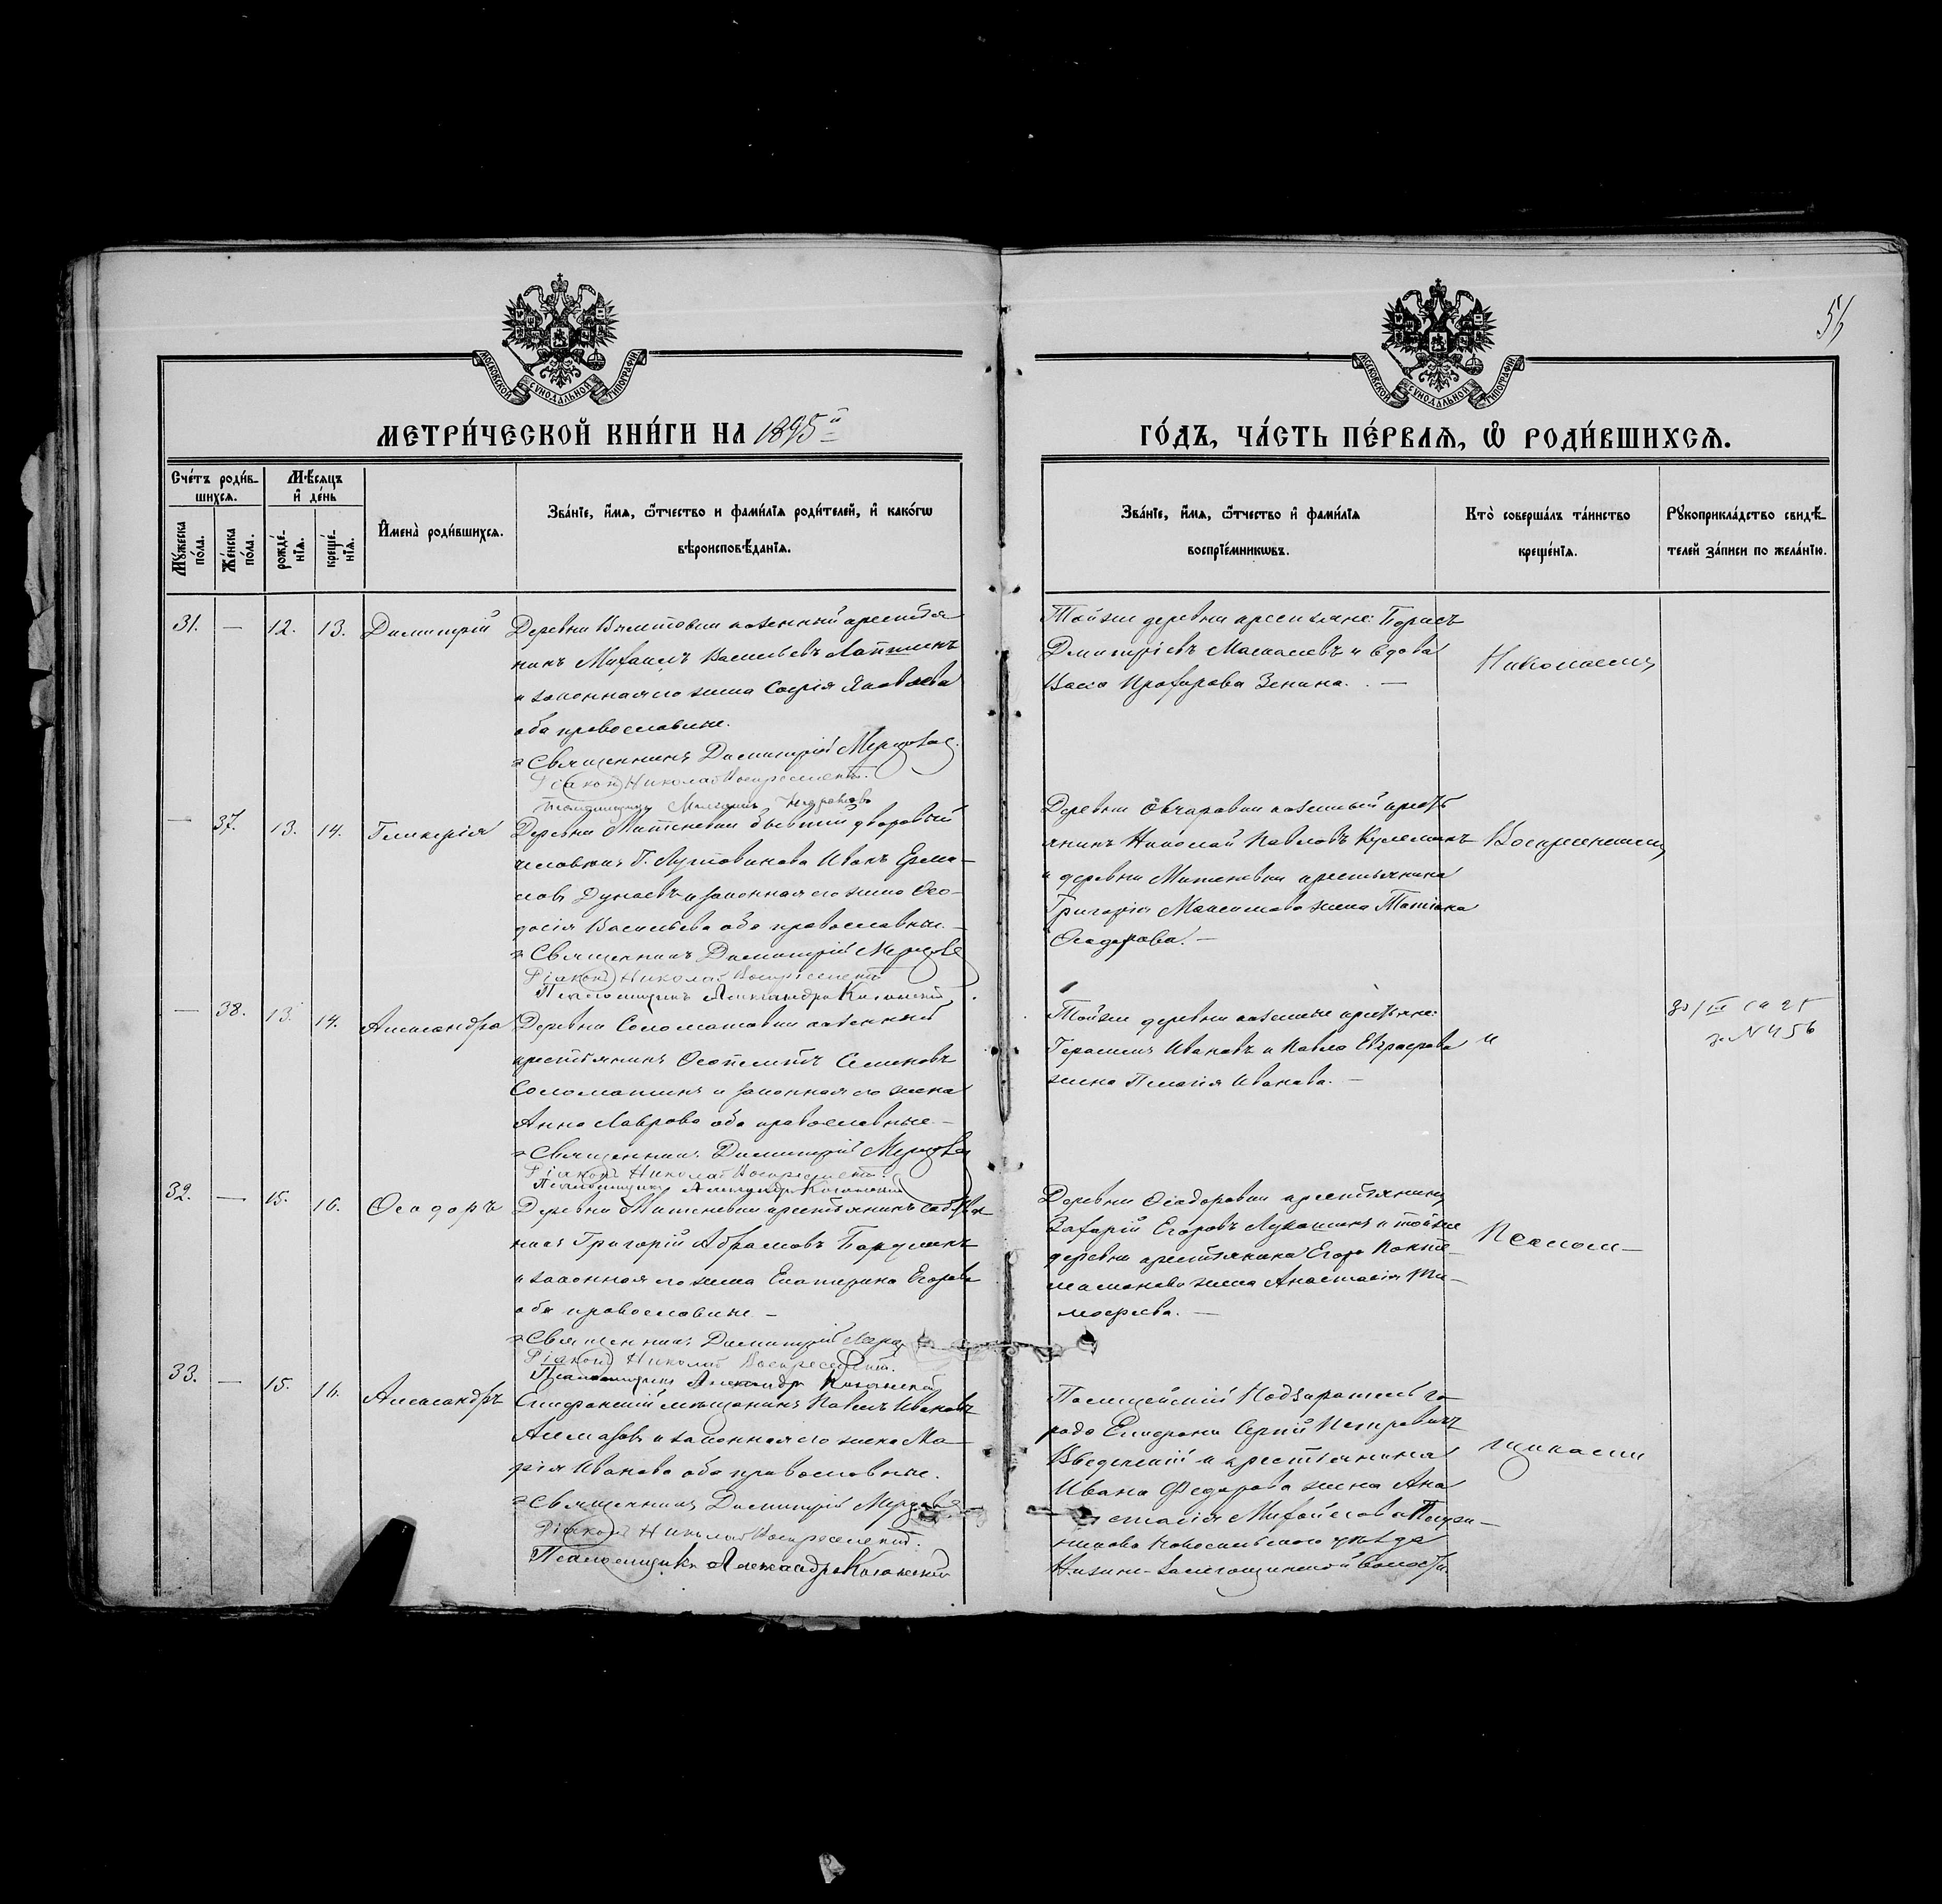 56
МОСКОВСКОЙ СѴНОДАЛЬНОЙ ТИПОГРАФІИ
МОСКОВСКОЙ СѴНОДАЛЬНОЙ ТИПОГРАФІИ
МЕТРИ́ЧЕСКОЙ КНИ́ГИ НА 1895й
ГО́ДЪ, ЧА́СТЬ ПЕ́РВАѦ, Ѽ РОДИ́ВШИХСѦ.
Сче́тъ роди́вшихсѧ.
Мꙋ́жеска по́ла.
Же́нска по́ла.
Мѣ́сѧцъ и҆ де́нь
рожде́нїѧ.
креще́нїѧ.
И҆мена̀ роди́вшихсѧ.
Зва́нїе, и҆́мѧ, ѻ҆́тчество и фами́лїѧ роди́телей, и҆ како́гѡ
вѣроисповѣ́данїѧ.
Зва́нїе, и҆́мѧ, ѻ҆́тчество и҆ фами́лїѧ
воспрїе́мникѡвъ.
Кто̀ соверша́лъ та́инство
креще́нїѧ.
Рꙋкоприкла́дство свидѣ́телей за́писи по жела́нїю.
31. — 12. 13. Димитрій
казенный крестья
никъ Михаилъ Васильевъ Лапшинъ
и законная его жена Софія Яковлева
оба православные.
Священникъ Димитрій
Діаконъ Николай Воскресенскій.
Тойже деревни крестьяне: Борисъ
Дмитріевъ и вдова
Зенина. —
Николаемъ
— 37. 13. 14. Гликерія
Деревни Митеневки бывшій дворовый
человѣкъ Г. Лутовинова Иванъ Ермо-
лаевъ Дунаевъ и законная его жена Ѳео-
досія Васильева оба православные. —
Священникъ Димитрій
Діаконъ Николай Воскресенскій
Псаломщикъ Александръ
Деревни Овчаровки казенный кресть
янинъ Николай Павловъ Кулешинъ
и деревни Митеневки крестьянина
Григорія Максимова жена Татіана
Ѳеодорова. —
Воскресенскимъ
— 38. 13. 14. Александра
Деревни Соломатовки казенный
крестьянинъ Ѳеопемптъ Семеновъ
Соломатинъ и законная его жена
Анна Лаврова оба православные —
Священникъ Димитрій
Діаконъ Николай Воскресенскій.
Псаломщикъ Александръ
Тойже деревни казенные крестьяне:
Герасимъ Ивановъ и Павла Евграфова
жена Пелагія Иванова. —
и
№ 456
32. — 15. 16. Ѳеодоръ
Деревни Митеневки крестьянинъ собствен
никъ Григорій Абрамовъ
и законная его жена Екатерина Егорова
оба православные —
Священникъ Димитрій
Діаконъ Николай Воскресенскій.
Псаломщикъ Александръ
Деревни Ѳеодоровки крестьянинъ
Захарій Егоровъ Лукашинъ и тойже
деревни крестьянина Егора
жена Анастасія Ти-
моѳеева. —
Псалом-
33. — 15. 16. Александръ
Епифанскій мѣщанинъ Павелъ Ивановъ
Алмазовъ и законная его жена Ма-
рія Иванова оба православные.
Священникъ Димитрій
Діаконъ Николай Воскресенскій.
Псаломщикъ Александръ
Полицейскій Надзиратель го-
рода Епифани Сергій Петровичъ
Введенскій и крестьянина
Ивана Федорова жена Ана
стасія Михайлова
Новосильскаго уѣзда
волости.
щикомъ